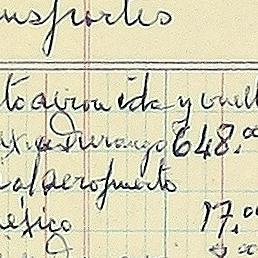 nsportes
to avion ida y vuelt
x a Durango 648.0
al aeropuerto
éxico 17.0